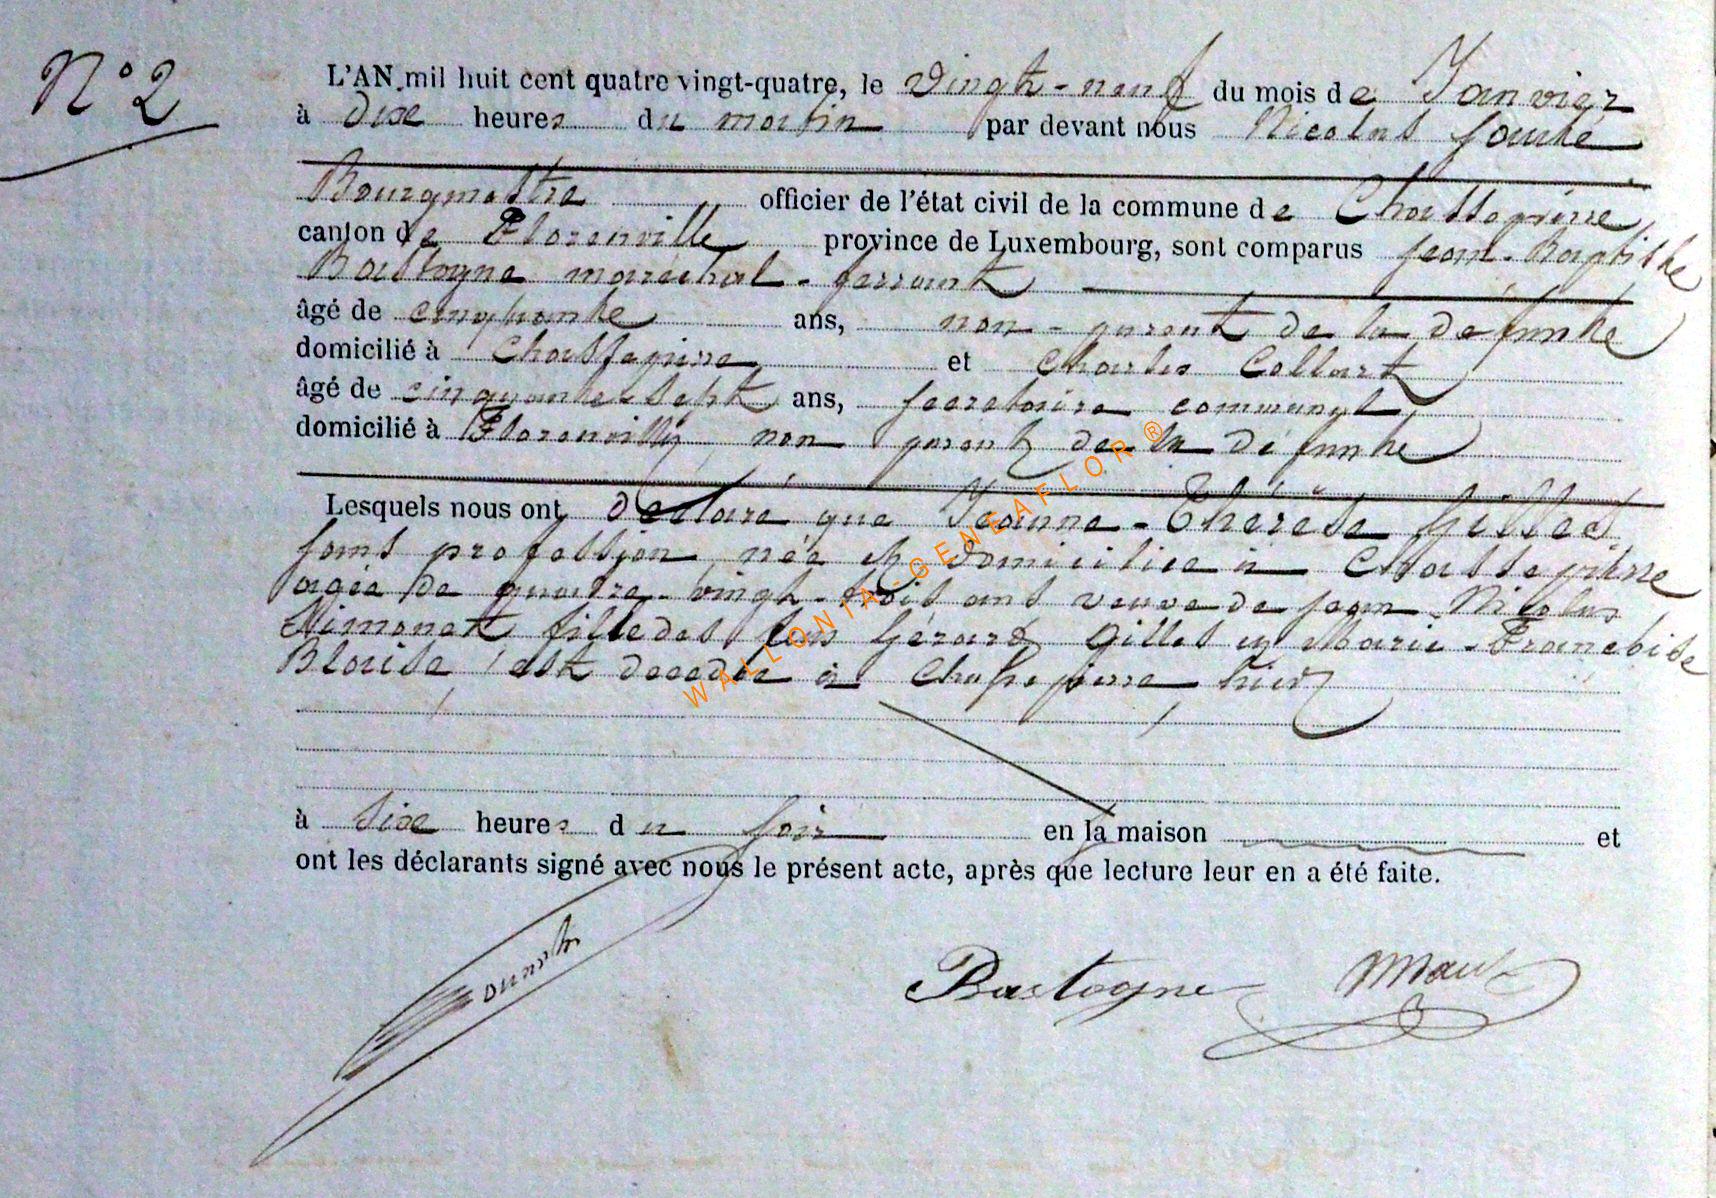 N° 2
L'AN mil huit cent quatre vingt-quatre, le vingt-neuf du mois de Janvier
à dixe heures du matin par devant nous Nicolas
Bourgmestre officier de l'état civil de la commune de Chassepierre
canton de Florenville province de Luxembourg, sont comparus Jean-Baptiste
Bastogne maréchal-ferrant
âgé de cinquante ans, non-parent de la défunte
domicilié à Chassepierre et Charles Collart
âgé de cinquante-sept ans, secretaire communal,
domicilié à Florenville, non parent de la défunte
Lesquels nous ont declaré que Jeanne-Thérèse Gilles
sans profession née et domiciliee à Chassepierre
agée de quatre-vingt-trois ans veuve de Jean Nicolas
fille des feus Gérard Gilles et Marie-Francoise
Blaise, est decedee à Chassepierre hier
à sixe heures du soir en la maison et
ont les déclarants signé avec nous le présent acte, après que lecture leur en a été faite.
Bastogne
WALLONIA-GENEAFLOR ®